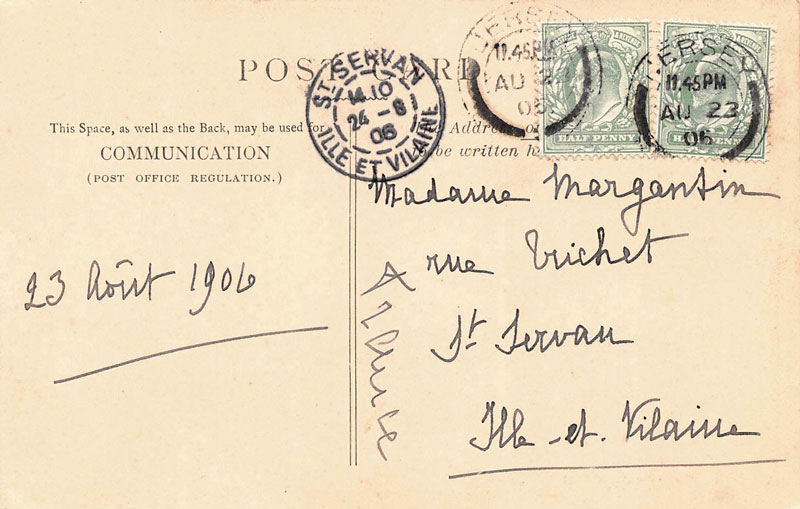 POST CARD
This Space, as well as the Back, may be used for
COMMUNICATION
(POST OFFICE REGULATION.)
Address
be written
ST SERVAN
14 10
24 - 8
06
ILLE ET VILAINE
JERSEY
11.45PM
AU 23
06
HALF PENNY
JERSEY
11.45PM
AU 23
06
HALF PENNY
23 Août 1906
Madame Margantin
rue Trichet
St Servan
Ille-et-Vilaine
France